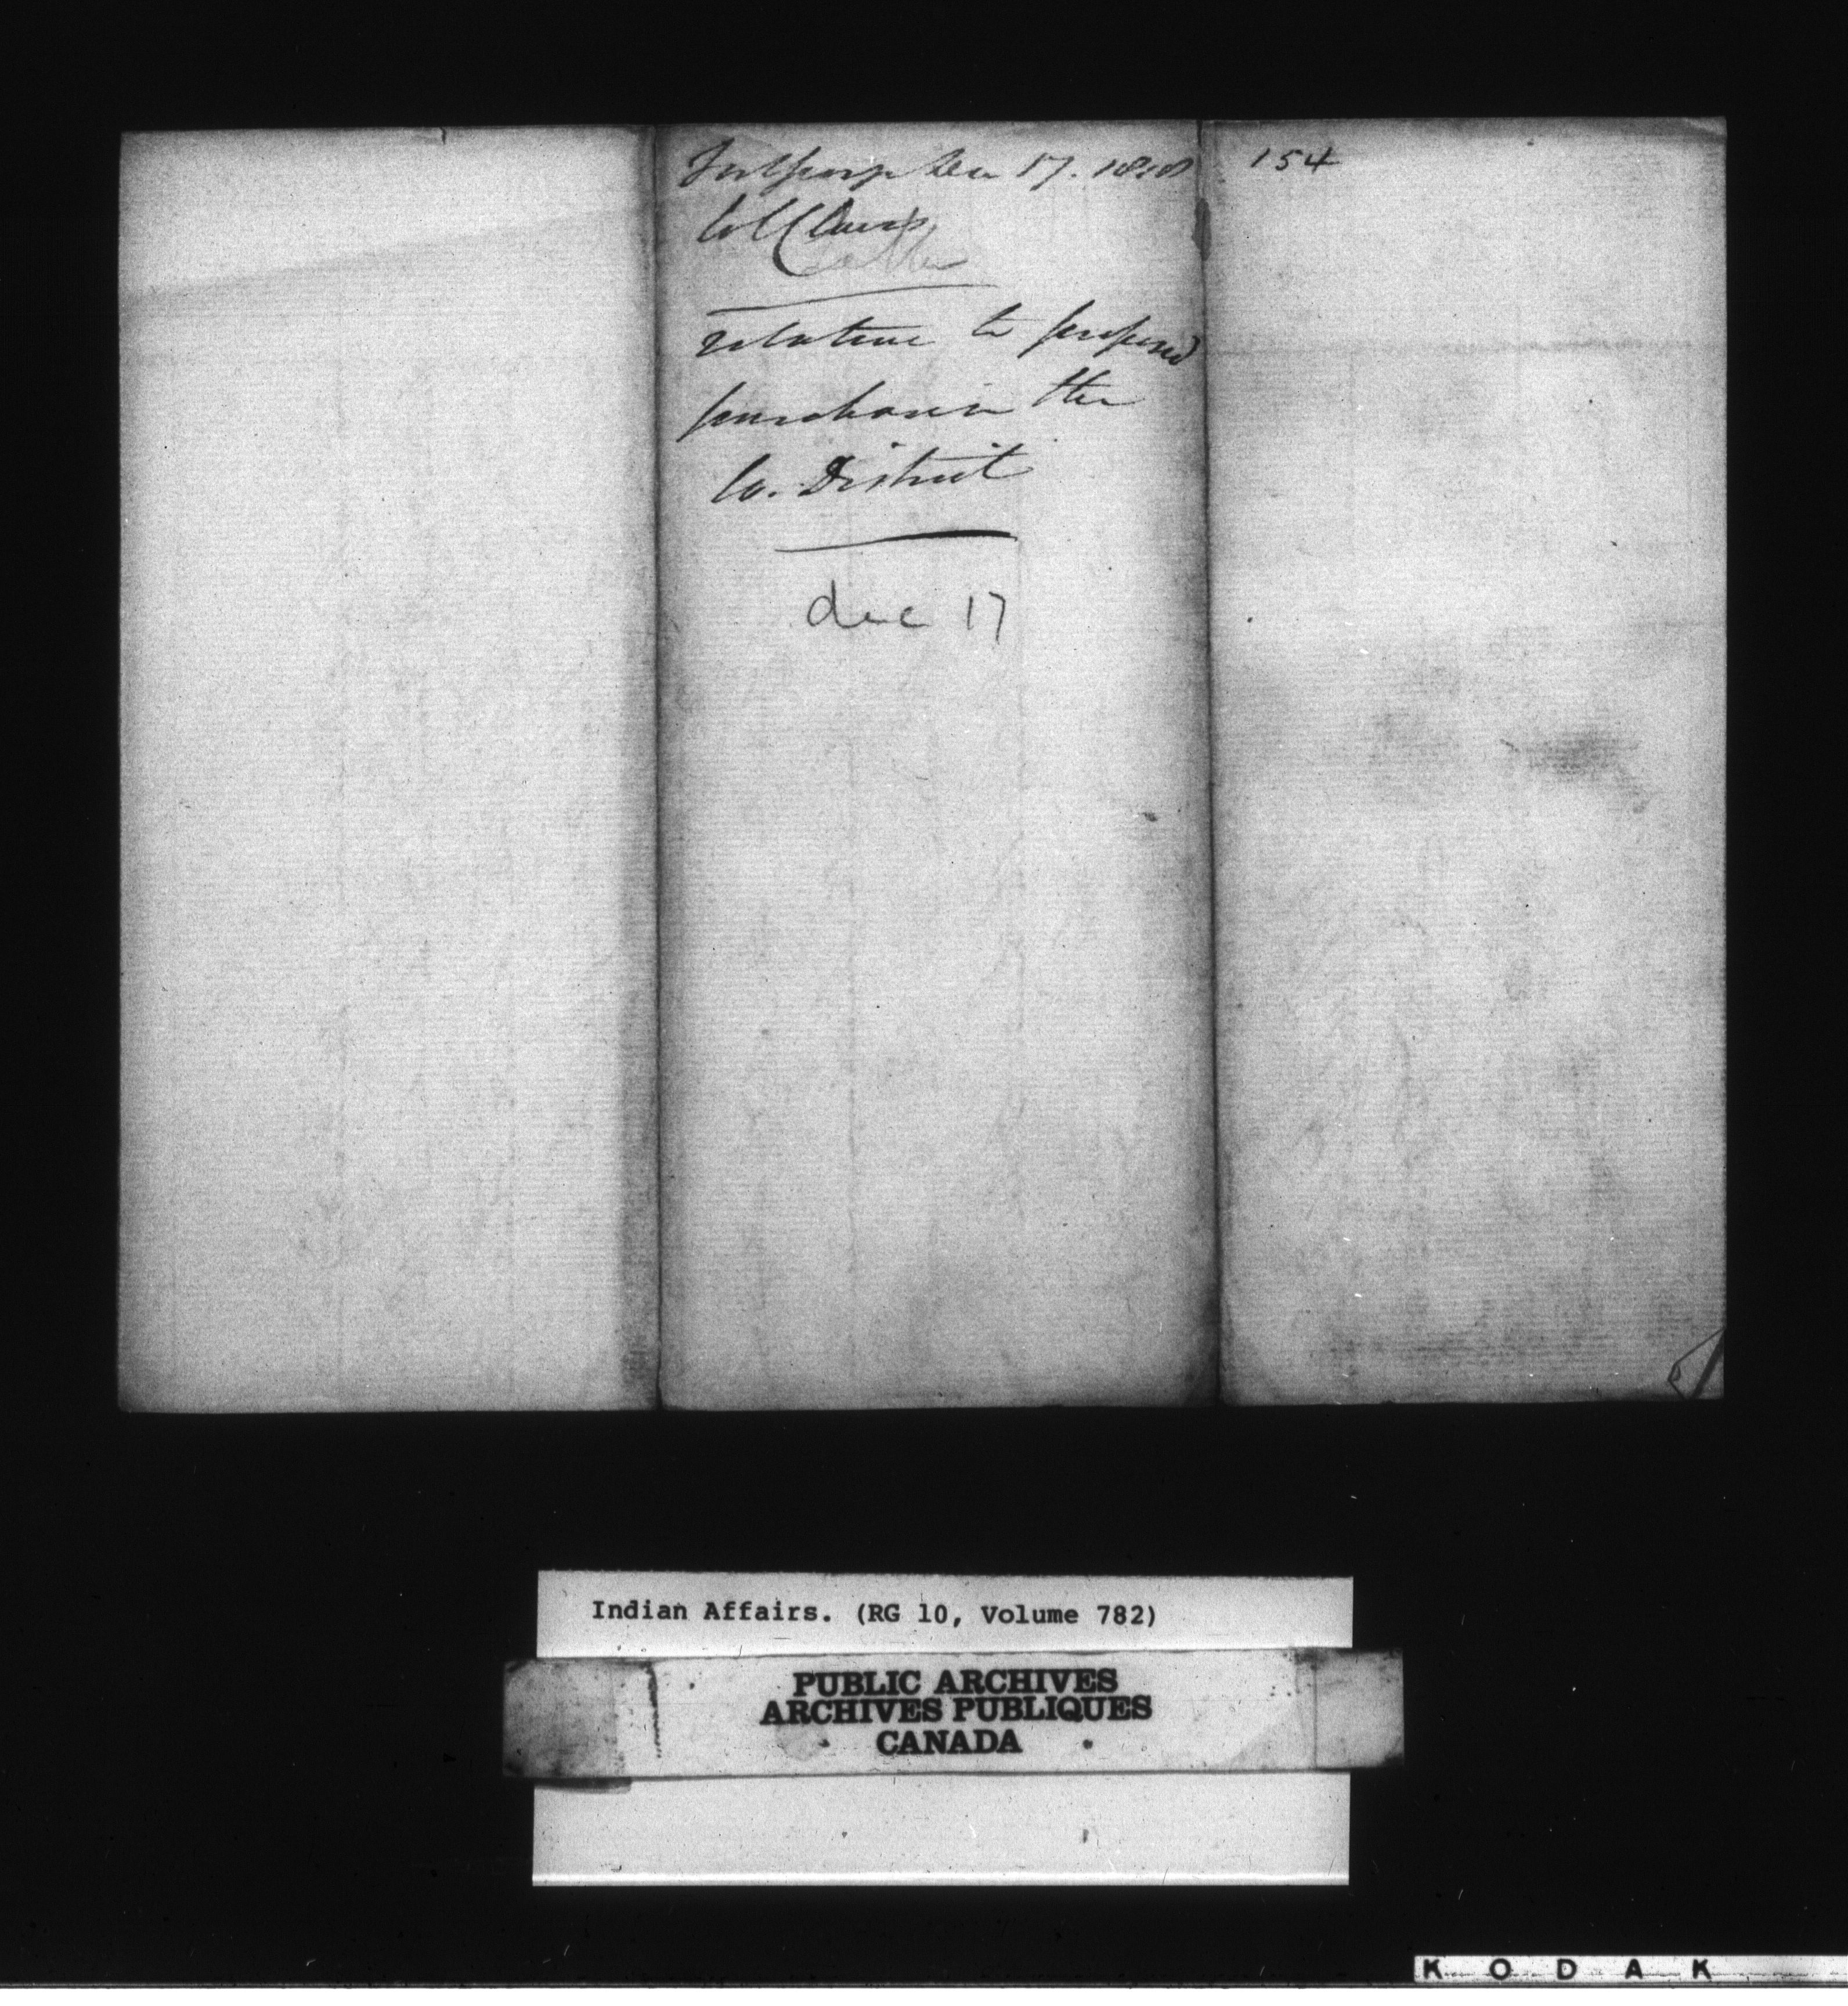 Fort George Dec 17. 1818
Col Claus
relative to proposed
purchase in the
Co. District
dec 17
154
Indian Affairs. (RG 10, Volume 782)
PUBLIC ARCHIVES
ARCHIVES PUBLIQUES
CANADA
KODAK